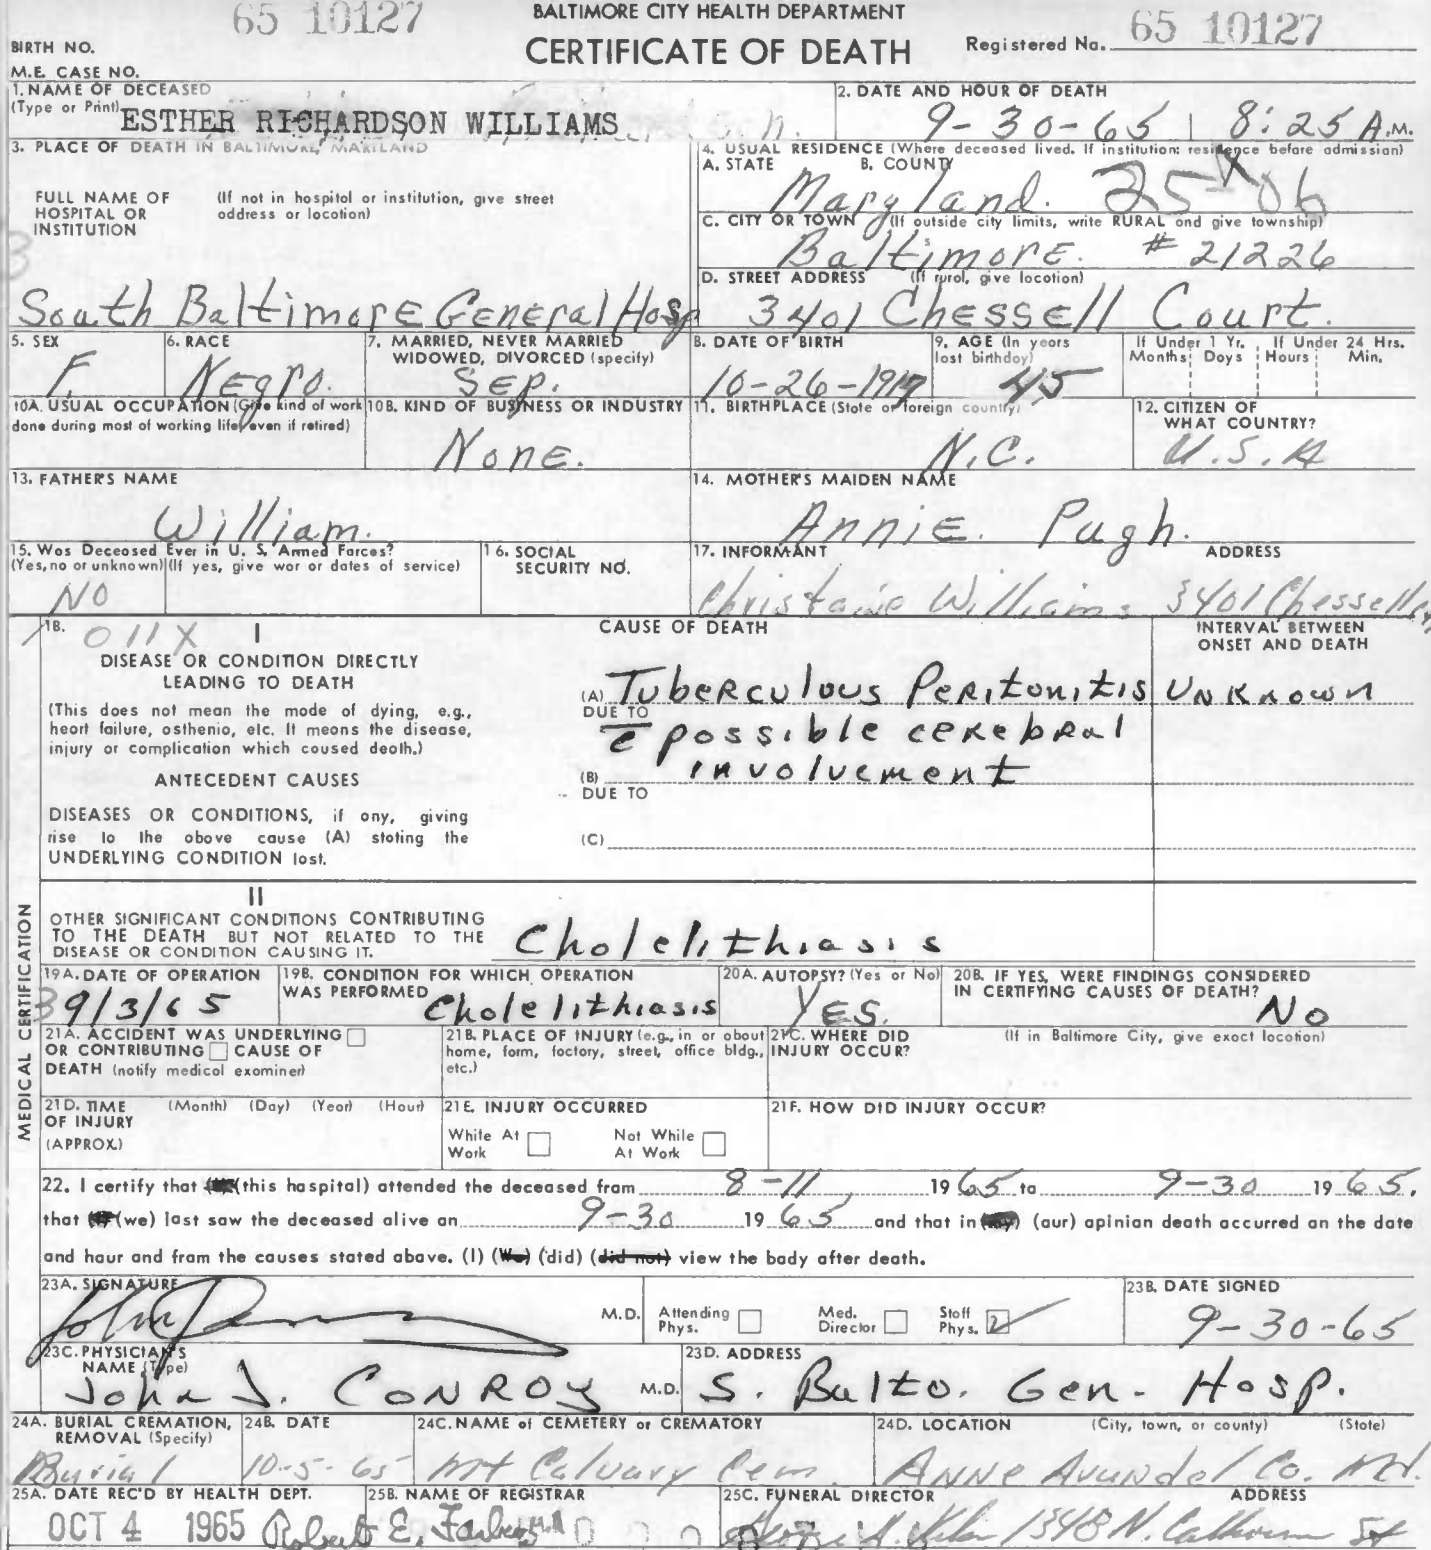 65 10127 BALTIMORE CITY HEALTH DEPARTMENT
BIRTH NO. CERTIFICATE OF DEATH Registered No. 65 10127
M.E. CASE NO.
1. NAME OF DECEASED (Type or Print) ESTHER RICHARDSON WILLIAMS
2. DATE AND HOUR OF DEATH 9-30-65 8:25 A.M.
3. PLACE OF DEATH IN BALTIMORE, MARYLAND
FULL NAME OF HOSPITAL OR INSTITUTION (If not in hospital or institution, give street address or location)
South Baltimore General Hosp
4. USUAL RESIDENCE (Where deceased lived. If institution: residence before admission)
A. STATE B. COUNTY
Maryland. 25-06
C. CITY OR TOWN (If outside city limits, write RURAL and give township)
Baltimore. #21226
D. STREET ADDRESS (If rural, give location)
3401 Chessell Court.
5. SEX F.
6. RACE Negro.
7. MARRIED, NEVER MARRIED WIDOWED, DIVORCED (specify) Sep.
8. DATE OF BIRTH 10-26-1917
9. AGE (In years last birthday) 45
If Under 1 Yr. Months Days
If Under 24 Hrs. Hours Min.
10A. USUAL OCCUPATION (Give kind of work done during most of working life, even if retired)
10B. KIND OF BUSINESS OR INDUSTRY None.
11. BIRTHPLACE (State or foreign country) N.C.
12. CITIZEN OF WHAT COUNTRY? U.S.A
13. FATHER'S NAME
William.
14. MOTHER'S MAIDEN NAME
Annie. Pugh.
15. Was Deceased Ever in U. S. Armed Forces? (Yes, no or unknown) (If yes, give war or dates of service)
NO
16. SOCIAL SECURITY NO.
17. INFORMANT ADDRESS
Williams 3401
18. 011X I
DISEASE OR CONDITION DIRECTLY LEADING TO DEATH
(This does not mean the mode of dying, e.g., heart failure, asthenia, etc. It means the disease, injury or complication which caused death.)
ANTECEDENT CAUSES
DISEASES OR CONDITIONS, if any, giving rise to the above cause (A) stating the UNDERLYING CONDITION last.
CAUSE OF DEATH
INTERVAL BETWEEN ONSET AND DEATH
(A) Tuberculous Peritonitis Unknown
DUE TO c̄ possible cerebral
(B) involvement
DUE TO
(C)
II
OTHER SIGNIFICANT CONDITIONS CONTRIBUTING TO THE DEATH BUT NOT RELATED TO THE DISEASE OR CONDITION CAUSING IT.
Cholelithiasis
MEDICAL CERTIFICATION
19A. DATE OF OPERATION 9/3/65
19B. CONDITION FOR WHICH OPERATION WAS PERFORMED Cholelithiasis
20A. AUTOPSY? (Yes or No) YES.
20B. IF YES, WERE FINDINGS CONSIDERED IN CERTIFYING CAUSES OF DEATH? No
21A. ACCIDENT WAS UNDERLYING OR CONTRIBUTING CAUSE OF DEATH (notify medical examiner)
21B. PLACE OF INJURY (e.g., in or about home, farm, factory, street, office bldg., etc.)
21C. WHERE DID INJURY OCCUR? (If in Baltimore City, give exact location)
21D. TIME OF INJURY (APPROX.) (Month) (Day) (Year) (Hour)
21E. INJURY OCCURRED
While At Work Not While At Work
21F. HOW DID INJURY OCCUR?
22. I certify that (this hospital) attended the deceased from 8-11, 1965 to 9-30 1965,
that (we) last saw the deceased alive on 9-30 1965 and that in (our) opinion death occurred on the date
and hour and from the causes stated above. (I) (We) (did) (did not) view the body after death.
23A. SIGNATURE M.D.
Attending Phys. Med. Director Staff Phys.
23B. DATE SIGNED 9-30-65
23C. PHYSICIAN'S NAME (Type) John J. CONROY M.D.
23D. ADDRESS S. Balto. Gen. Hosp.
24A. BURIAL CREMATION, REMOVAL (Specify) Burial
24B. DATE 10-5-65
24C. NAME of CEMETERY or CREMATORY Mt Calvary Cem
24D. LOCATION (City, town, or county) (State) Anne Arundel Co. Md.
25A. DATE REC'D BY HEALTH DEPT. OCT 4 1965
25B. NAME OF REGISTRAR Robert E. Farber
25C. FUNERAL DIRECTOR ADDRESS
1348 N. Calhoun St